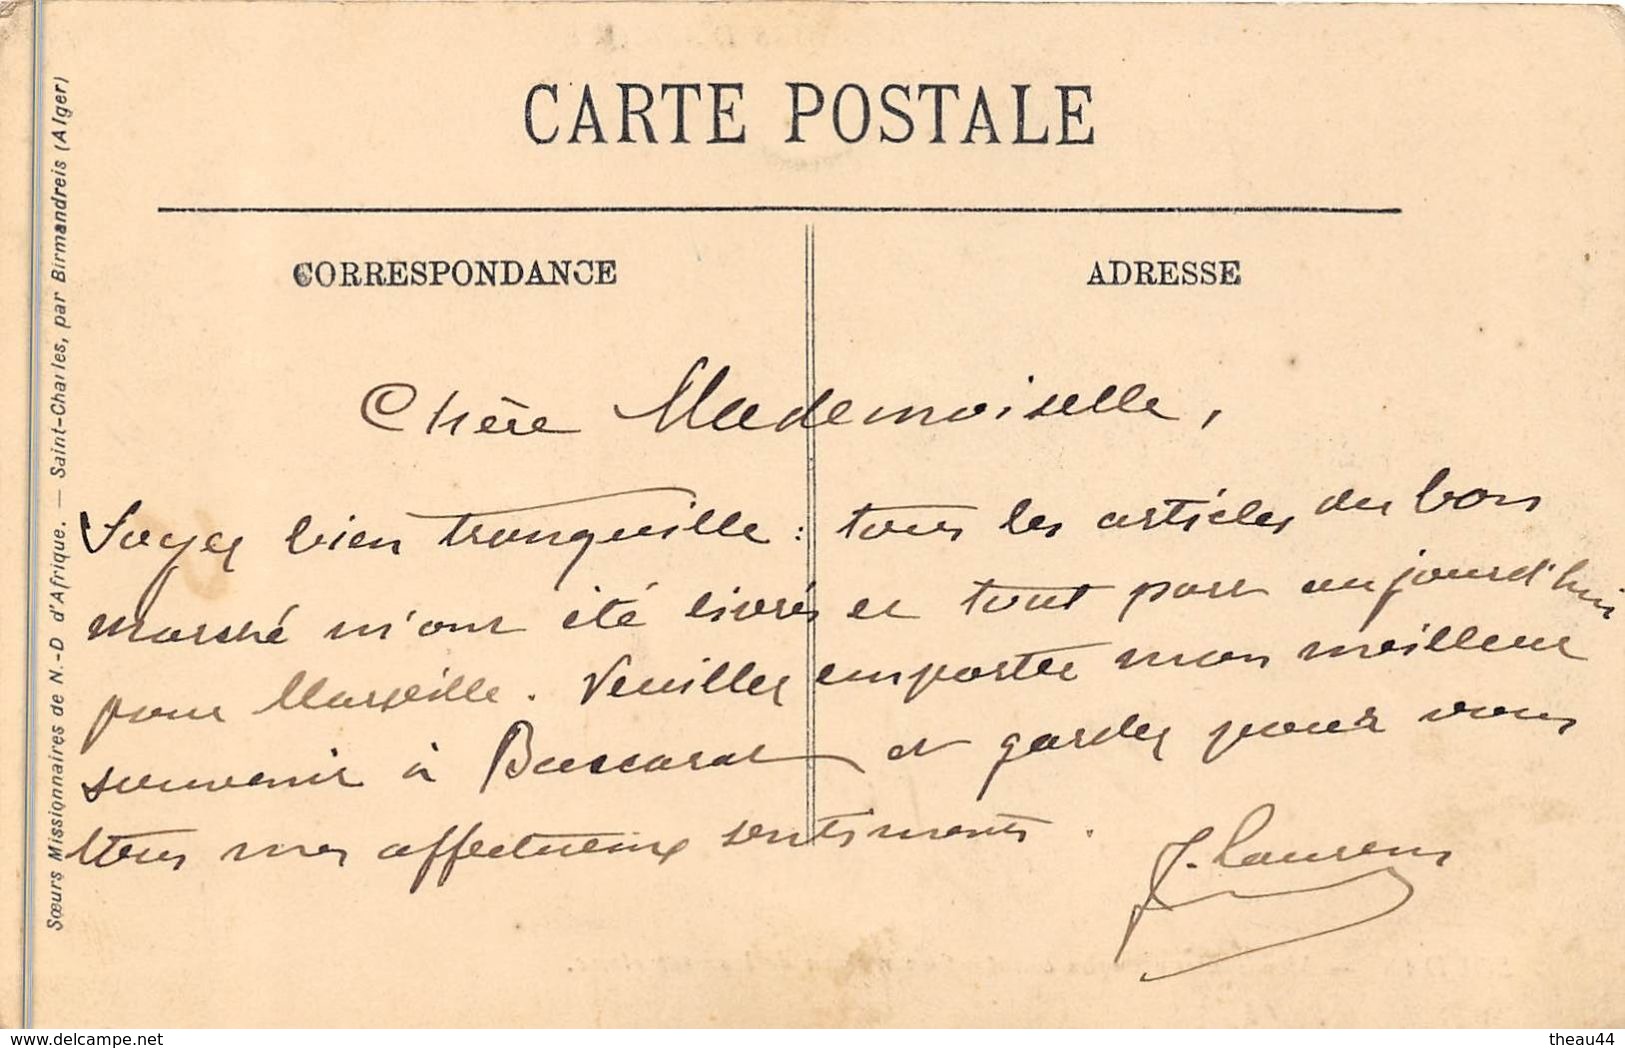 CARTE POSTALE
CORRESPONDANCE
ADRESSE
Sœurs Missionnaires de N.-D d'Afrique. — Saint-Charles, par Birmandreis (Alger)
Chère Mademoiselle,
Soyez bien tranquille : tous les articles du bon
marché m'ont été livrés et tout part aujourd'hui
pour Marseille. Veuillez emporter mon meilleur
souvenir à Baccarat et gardez pour vous
tous mes affectueux sentiments.
J. Laurens
delcampe.net
theau44